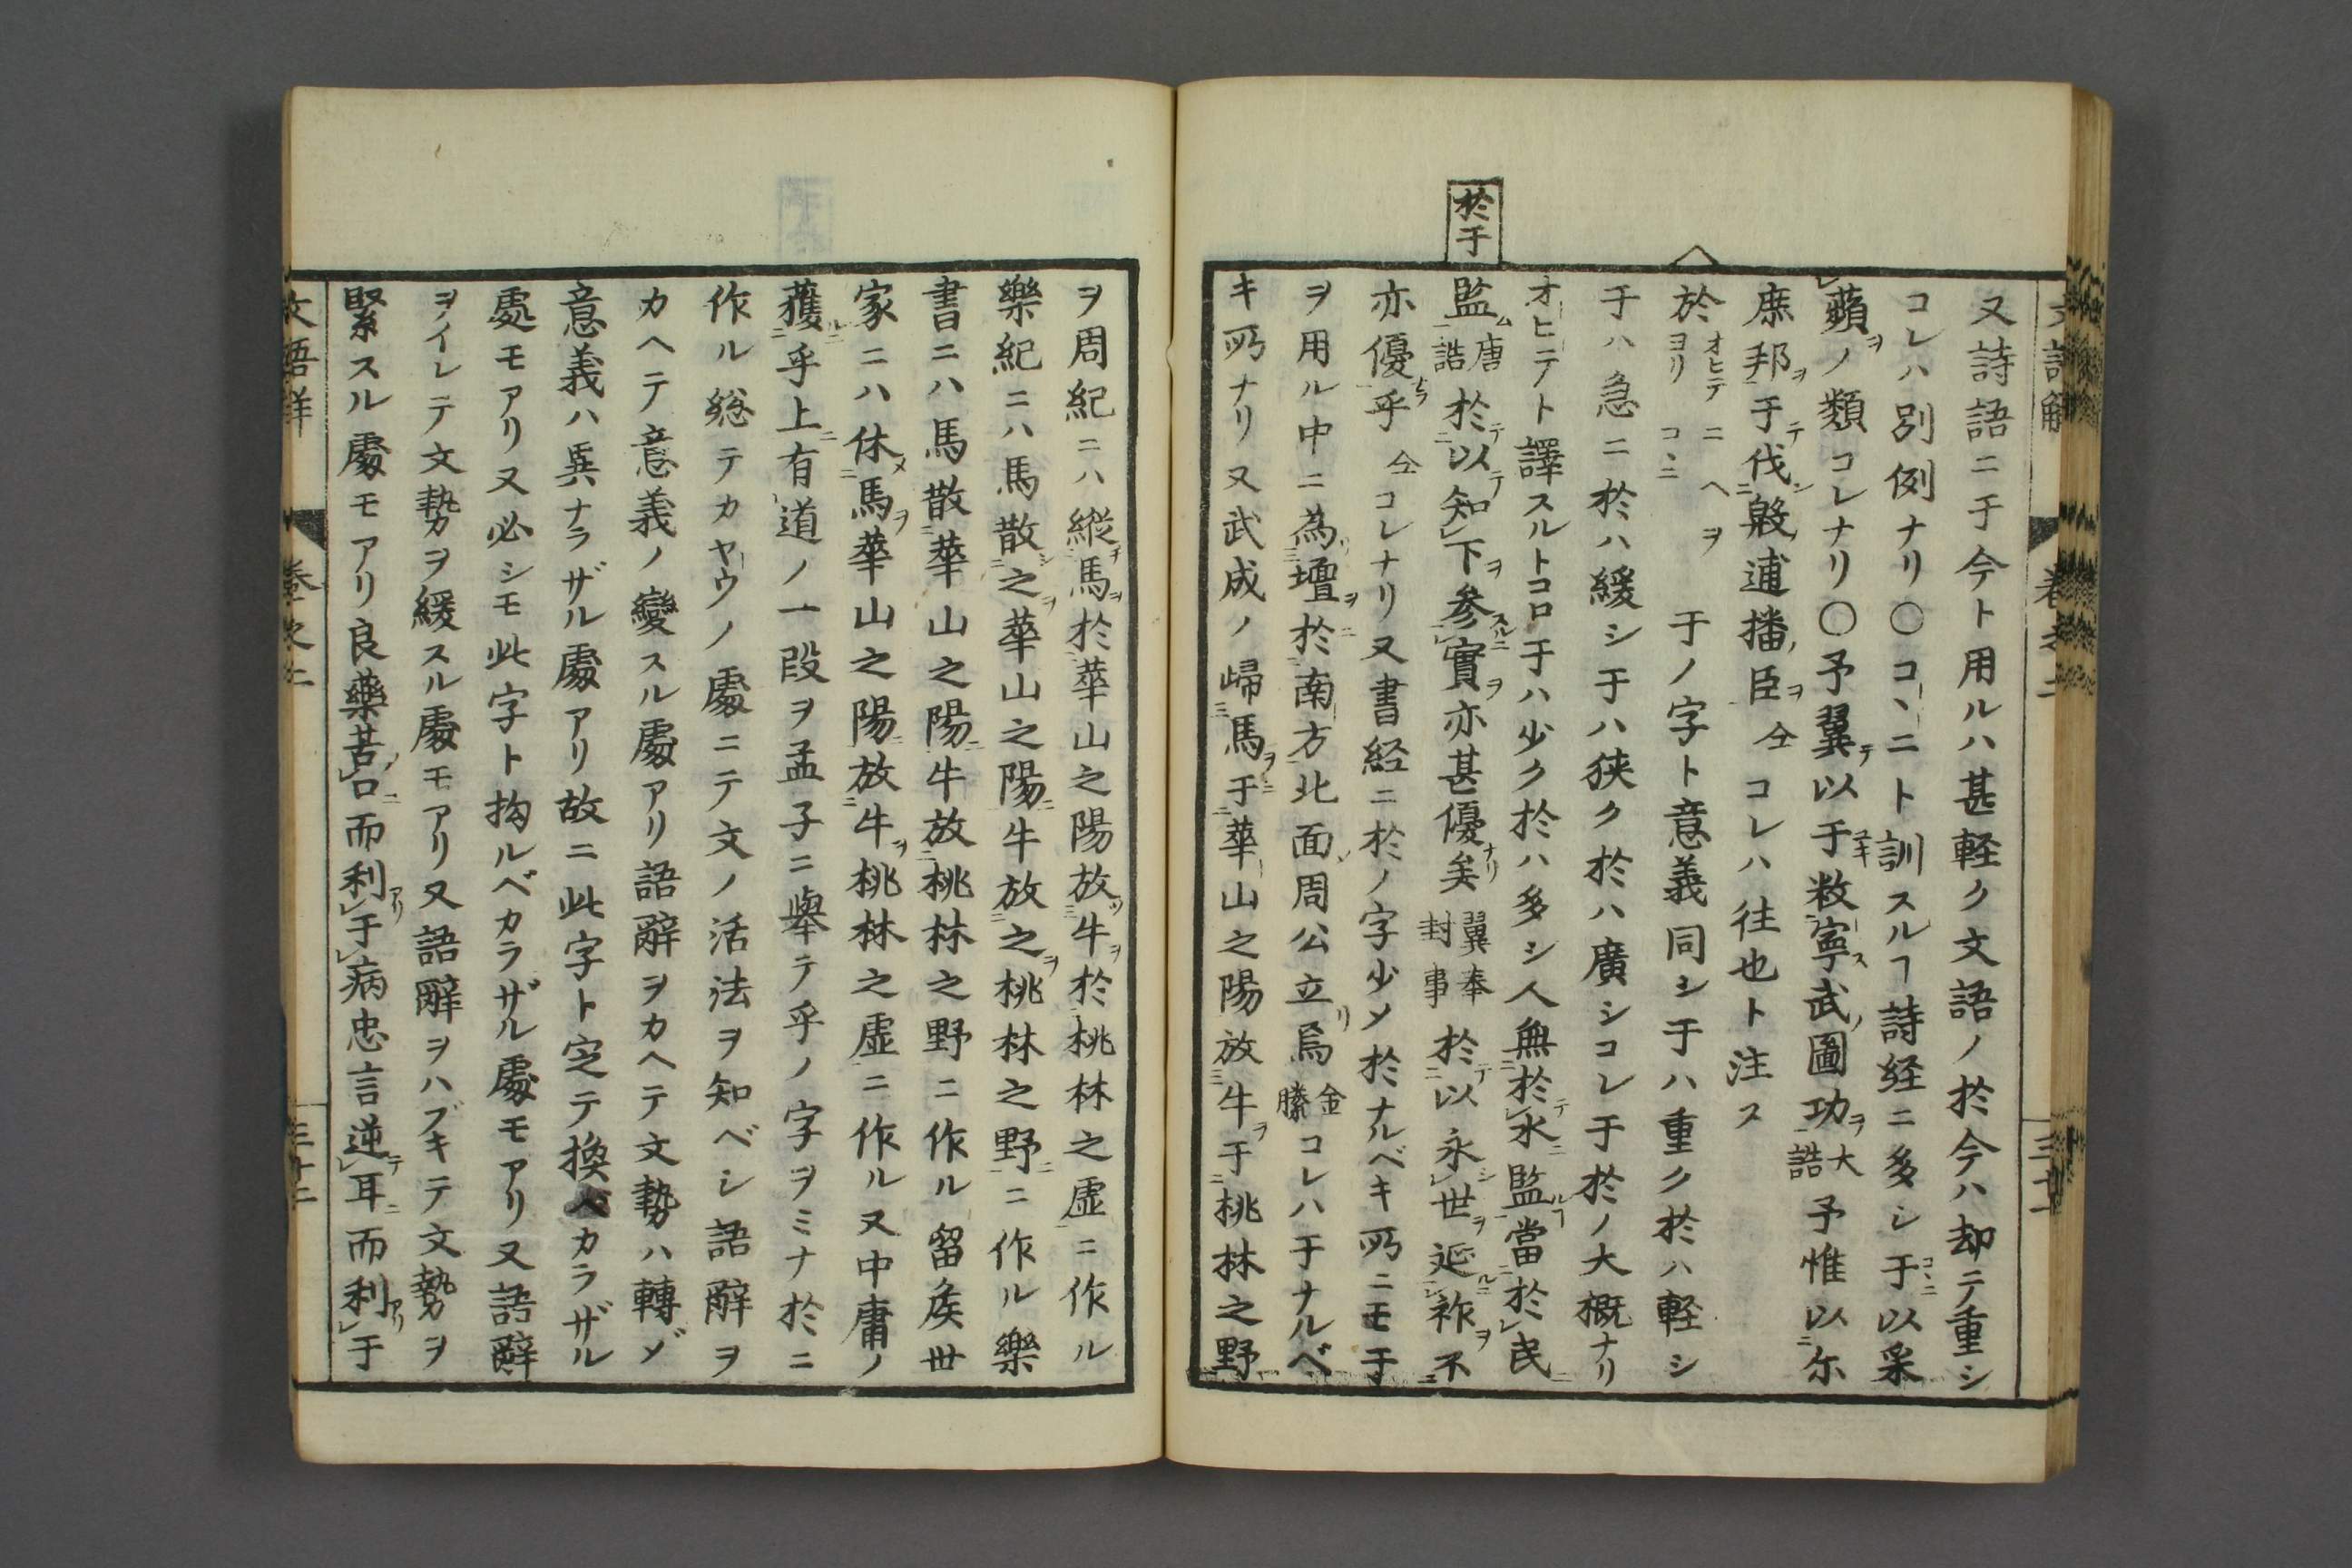 於于
又詩語ニ于今ト用ルハ甚軽ク文語ノ於今ハ却テ重シ
コレハ別例ナリ○コヽニト訓スルヿ詩経ニ多シ于以采
蘋ノ類コレナリ○予翼以于敉寧武圖功大誥予惟以尓
庶邦于伐殷逋播臣仝コレハ往也ト注ス
於オヒテニヘヲヨリコヽニ于ノ字ト意義同シ于ハ重ク於ハ軽シ
于ハ急ニ於ハ緩シ于ハ狭ク於ハ廣シコレ于於ノ大概ナリ
オヒテト譯スルトコロ于ハ少ク於ハ多シ人無於水監當於民
監唐誥於以知下参實亦甚優矣翼奉封事於以永世延祚不
亦優乎仝コレナリ又書経ニ於ノ字少メ於ナルベキ所ニモ于
ヲ用ル中ニ為壇於南方北面周公立焉金縢コレハ于ナルベ
キ所ナリ又武成ノ歸馬于華山之陽放牛于桃林之野
ヲ周紀ニハ縦馬於華山之陽放牛於桃林之虚ニ作ル
樂紀ニハ馬散之華山之陽牛放之桃林之野ニ作ル樂
書ニハ馬散華山之陽牛放桃林之野ニ作ル留侯世
家ニハ休馬華山之陽放牛桃林之虚ニ作ル又中庸ノ
獲乎上有道ノ一段ヲ孟子ニ擧テ乎ノ字ヲミナ於ニ
作ル総テカヤウノ處ニテ文ノ活法ヲ知ベシ語辭ヲ
カヘテ意義ノ變スル處アリ語辭ヲカヘテ文勢ハ轉ジ
意義ハ異ナラザル處アリ故ニ此字ト定テ換ベカラザル
處モアリ又必シモ此字ト拘ルベカラザル處モアリ又語辭
ヲイレテ文勢ヲ緩スル處モアリ又語辭ヲハブキテ文勢ヲ
緊スル處モアリ良藥苦口而利于病忠言逆耳而利于